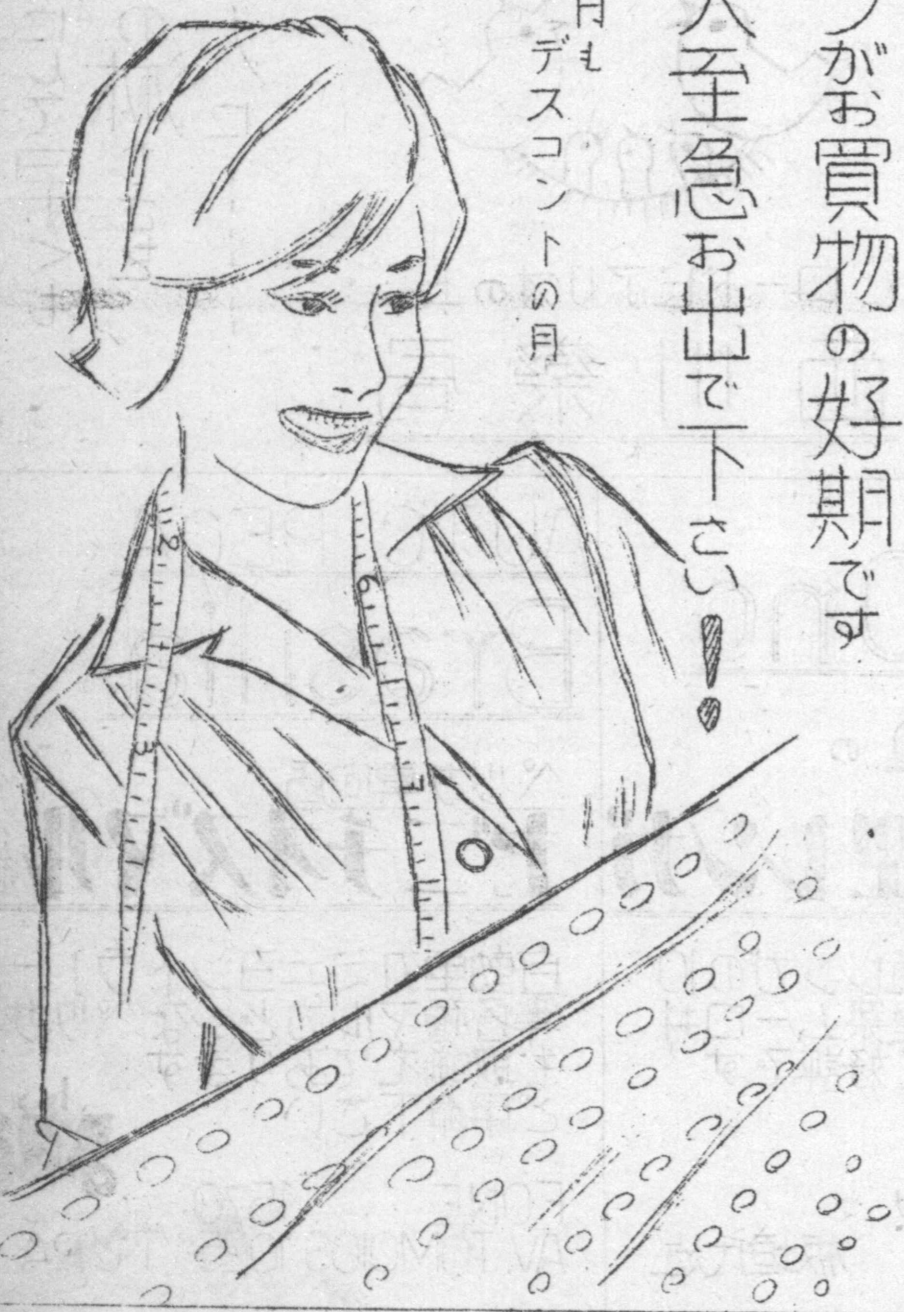 がお買物の好期です
至急お出で下さい!
月もデスコントの月
2
3
6
7